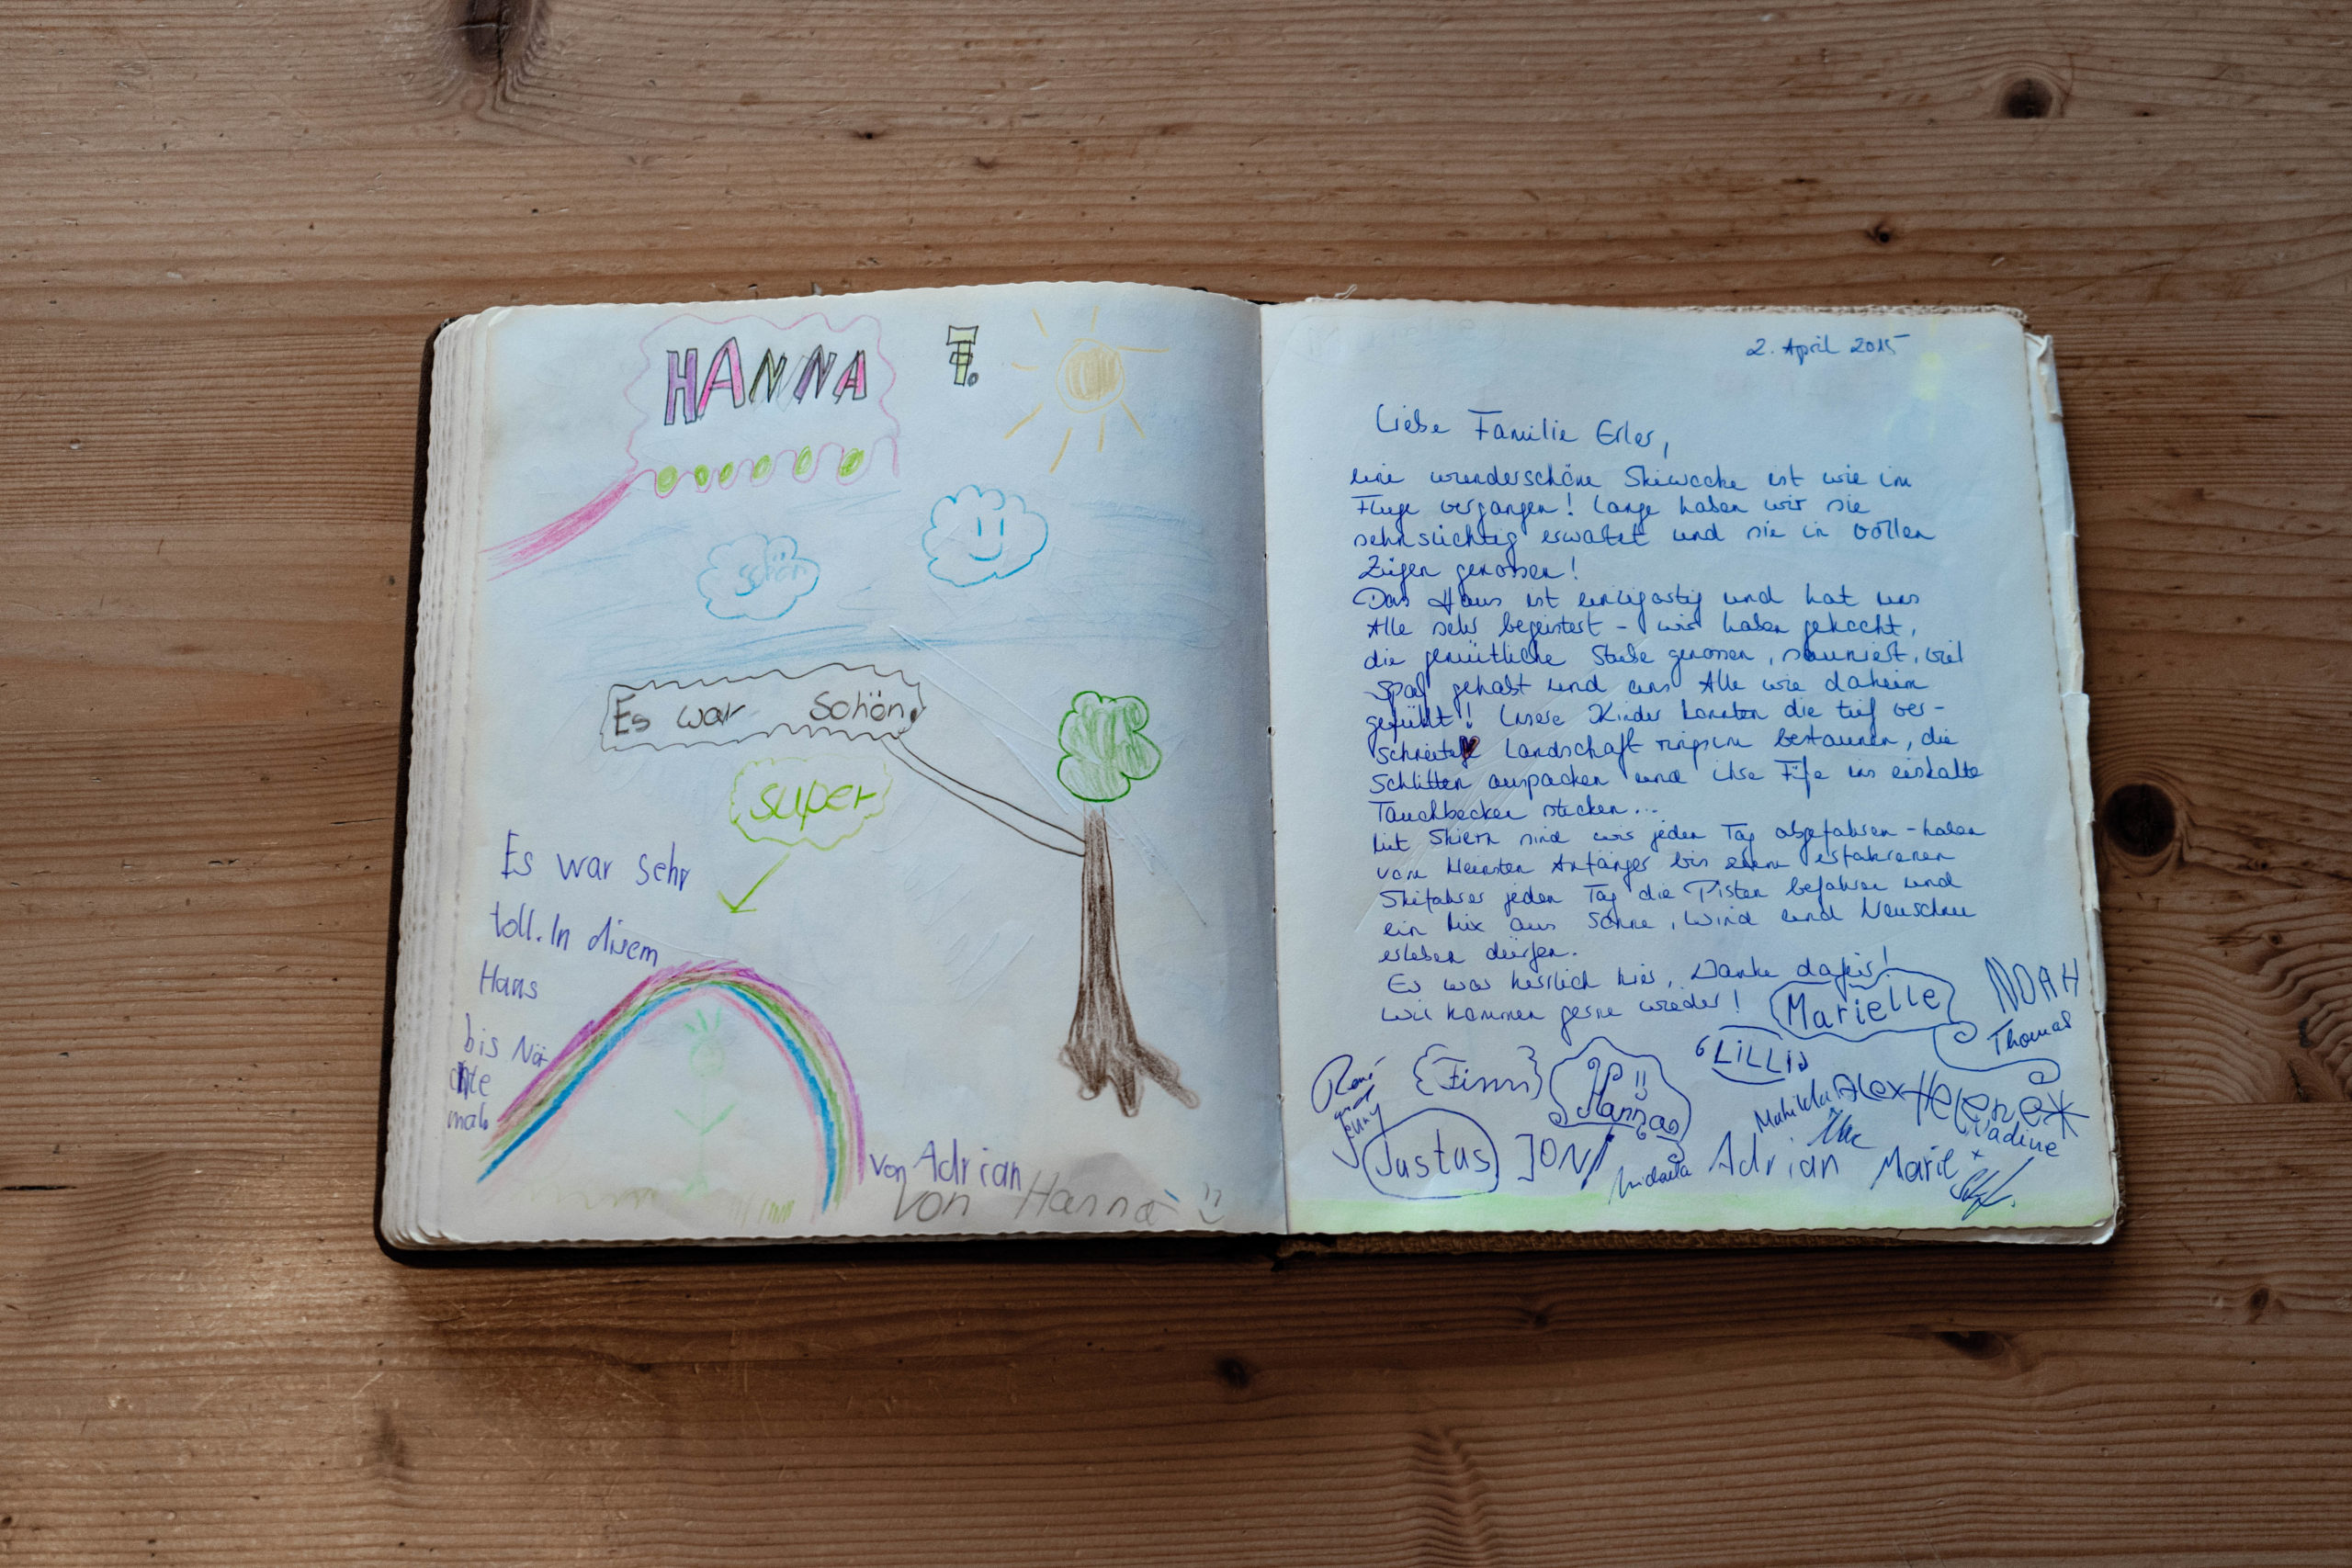 HANNA F.
schön
Es war schön.
super
Es war sehr
toll. In disem
Haus
bis Näı
chte
mal.
von Adrian
von Hanna
2. April 2015
Liebe Familie Erler,
eine wunderschöne Skiwoche ist wie im
Fluge vergangen! Lange haben wir sie
sehnsüchtig erwartet und sie in vollen
Zügen genossen!
Das Haus ist einzigartig und hat uns
Alle sehr begeistert - wir haben gekocht,
die gemütliche Stube genossen, sauniert, viel
Spaß gehabt und uns Alle wie daheim
gefühlt! Unsere Kinder konnten die tief ver-
schneite Landschaft ringsum bestaunen, die
Schlitten auspacken und ihre Füße ins eiskalte
Tauchbecken stecken...
Mit Skiern sind wir jeden Tag abgefahren - haben
vom kleinsten Anfänger bis zum erfahrenen
Skifahrer jeden Tag die Pisten befahren und
ein Mix aus Sonne, Wind und Neuschnee
erleben dürfen.
Es war herrlich hier, Danke dafür!
Wir kommen gerne wieder!
Marielle
NOAH
Thomas
LiLLi
René
{Finn}
Hanna
Mathilda
Alex
Helene
Nadine
Justus
JONA
Adrian
Marie